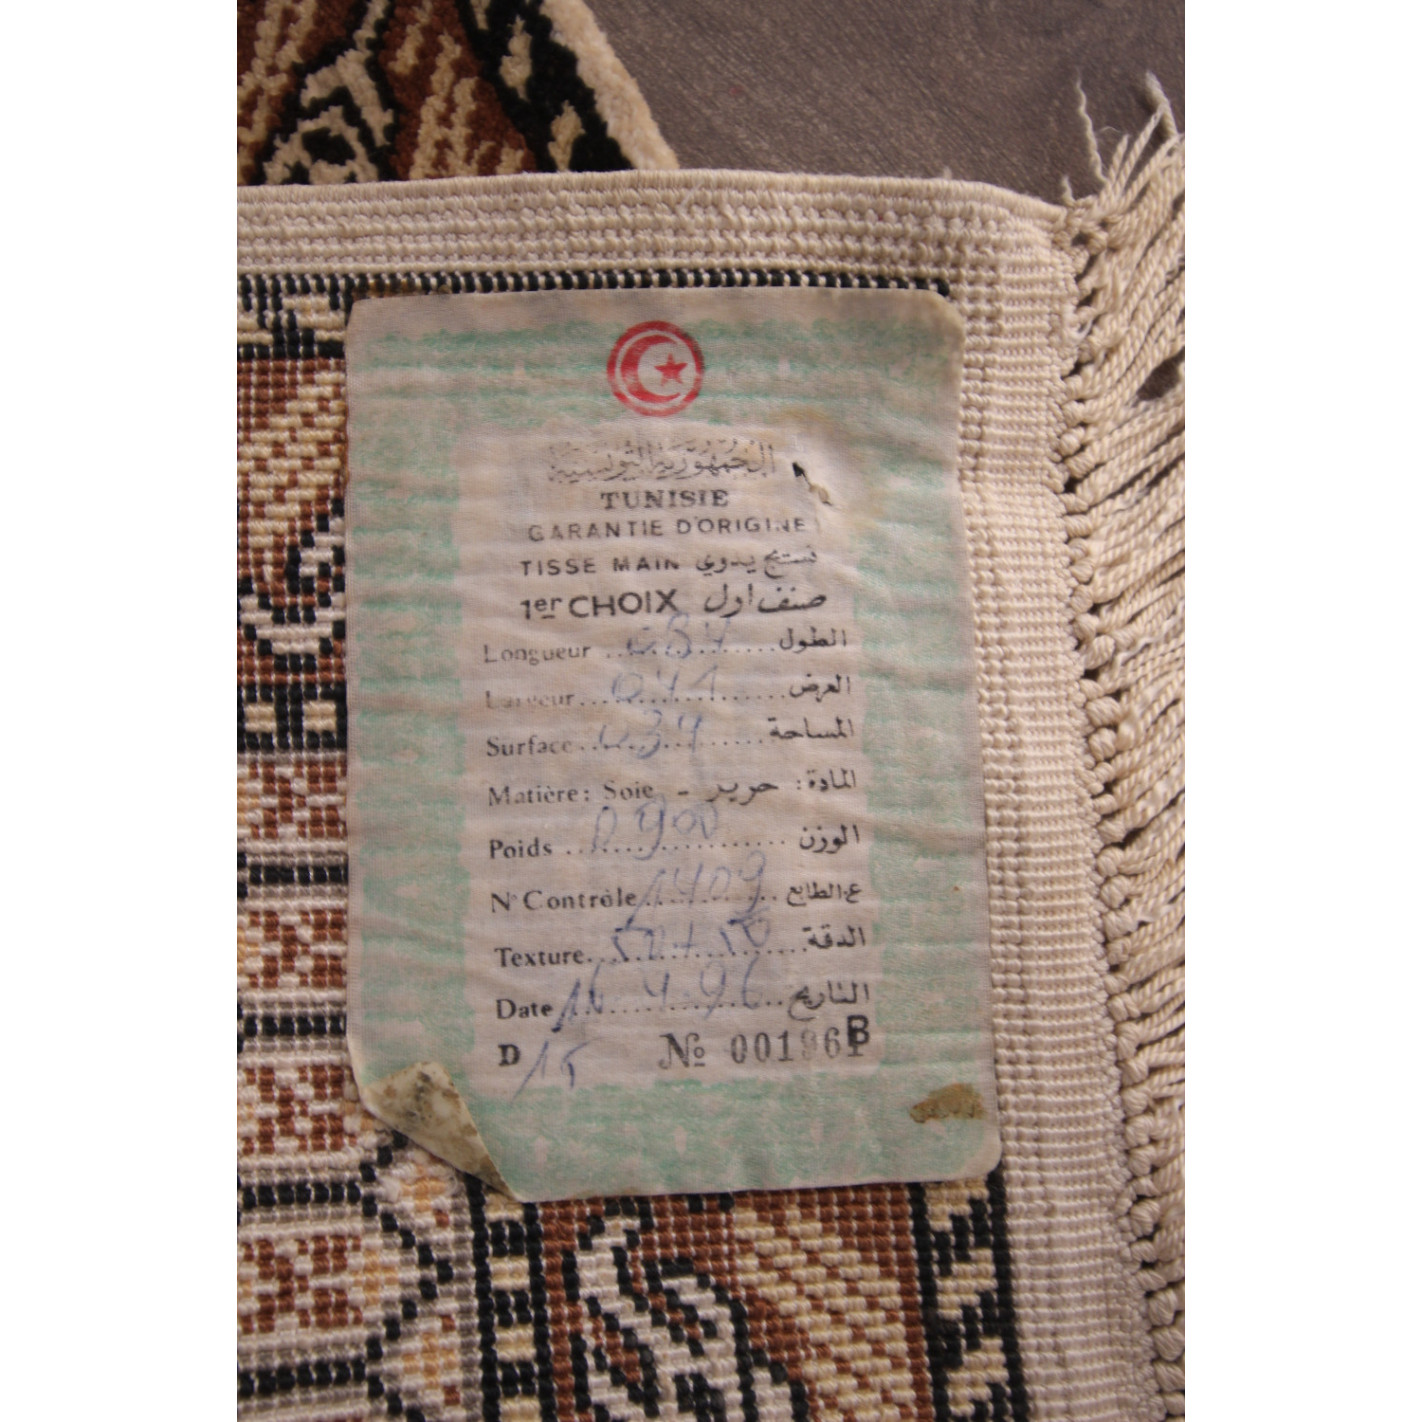 الجمهورية التونسية
TUNISIE
GARANTIE D'ORIGINE
TISSE MAIN نسيج يدوي
1er CHOIX صنف اول
Longueur ............ الطول
Largeur ............ 041 العرض
Surface ............ 034 المساحة
Matière: Soie - حرير المادة:
Poids ............ 0900 الوزن
N° Contrôle ............ 1409 ع.الطابع
Texture ............ 50+50 الدقة
Date ............ التاريخ
D 15 № 001961 B